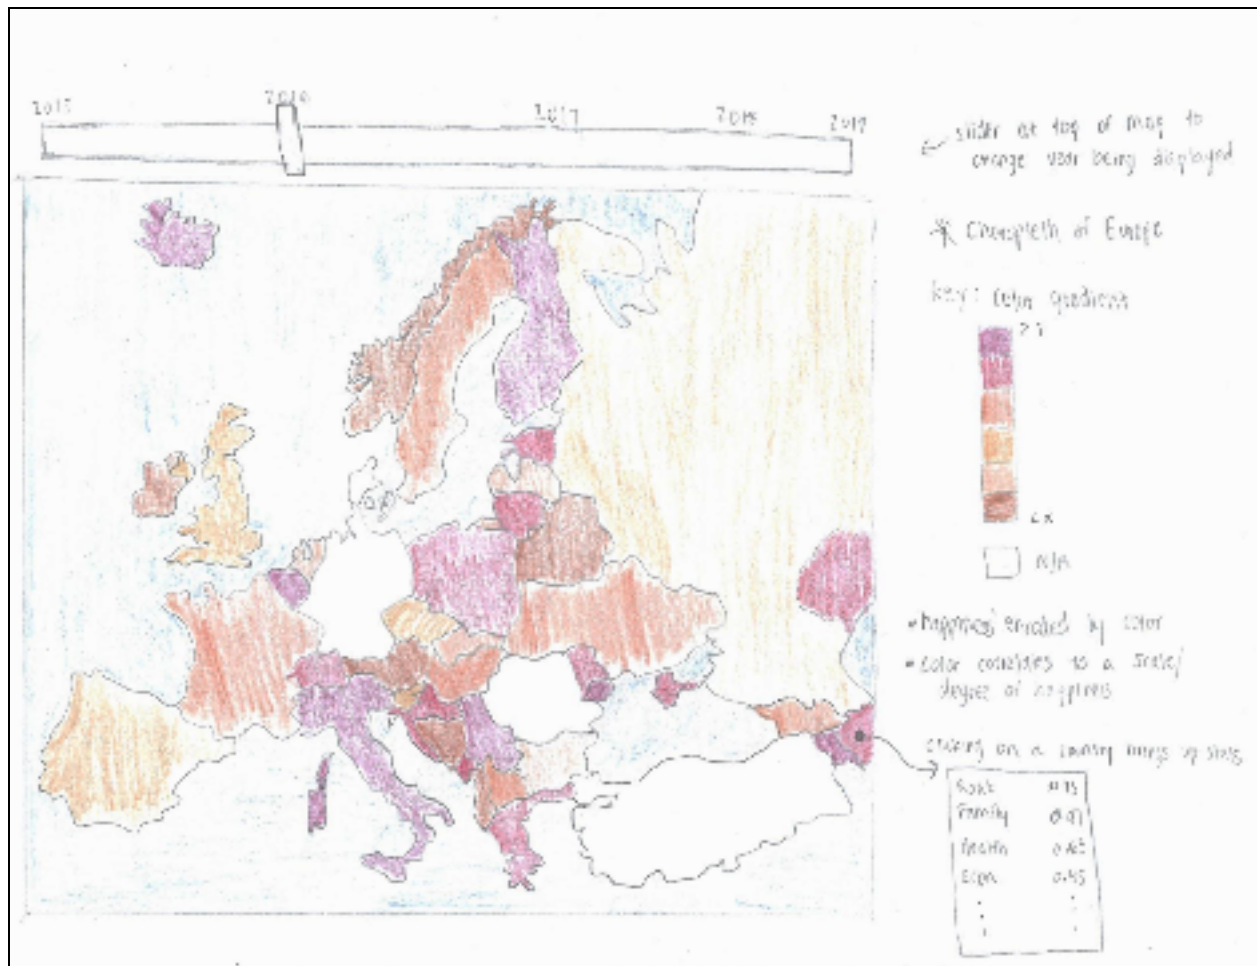 2015 2016 2017 2018 2019
slider at top of map to
change year being displayed
* Choropleth of Europe
key: Color gradient
N/A
• happiness encoded by color
• color coincides to a scale/
degree of happiness
clicking on a country brings up stats
Family
Health 0.65
Econ 0.45